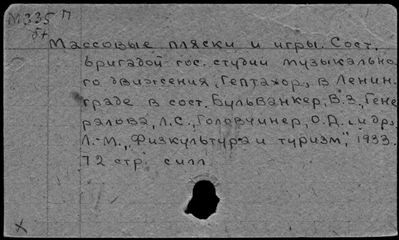 М335 П
бт
Массовые пляски и игры. Сост.
бригадой гос. студии музыкально-
го движения „Гептахор„ в Ленин-
граде в сост. Бульванкер, В.З., Гене-
ралова, Л.С., Головчинер, О.Д. и др.
Л.-М., „Физкультура и туризм", 1933.
72 стр. с илл.
х